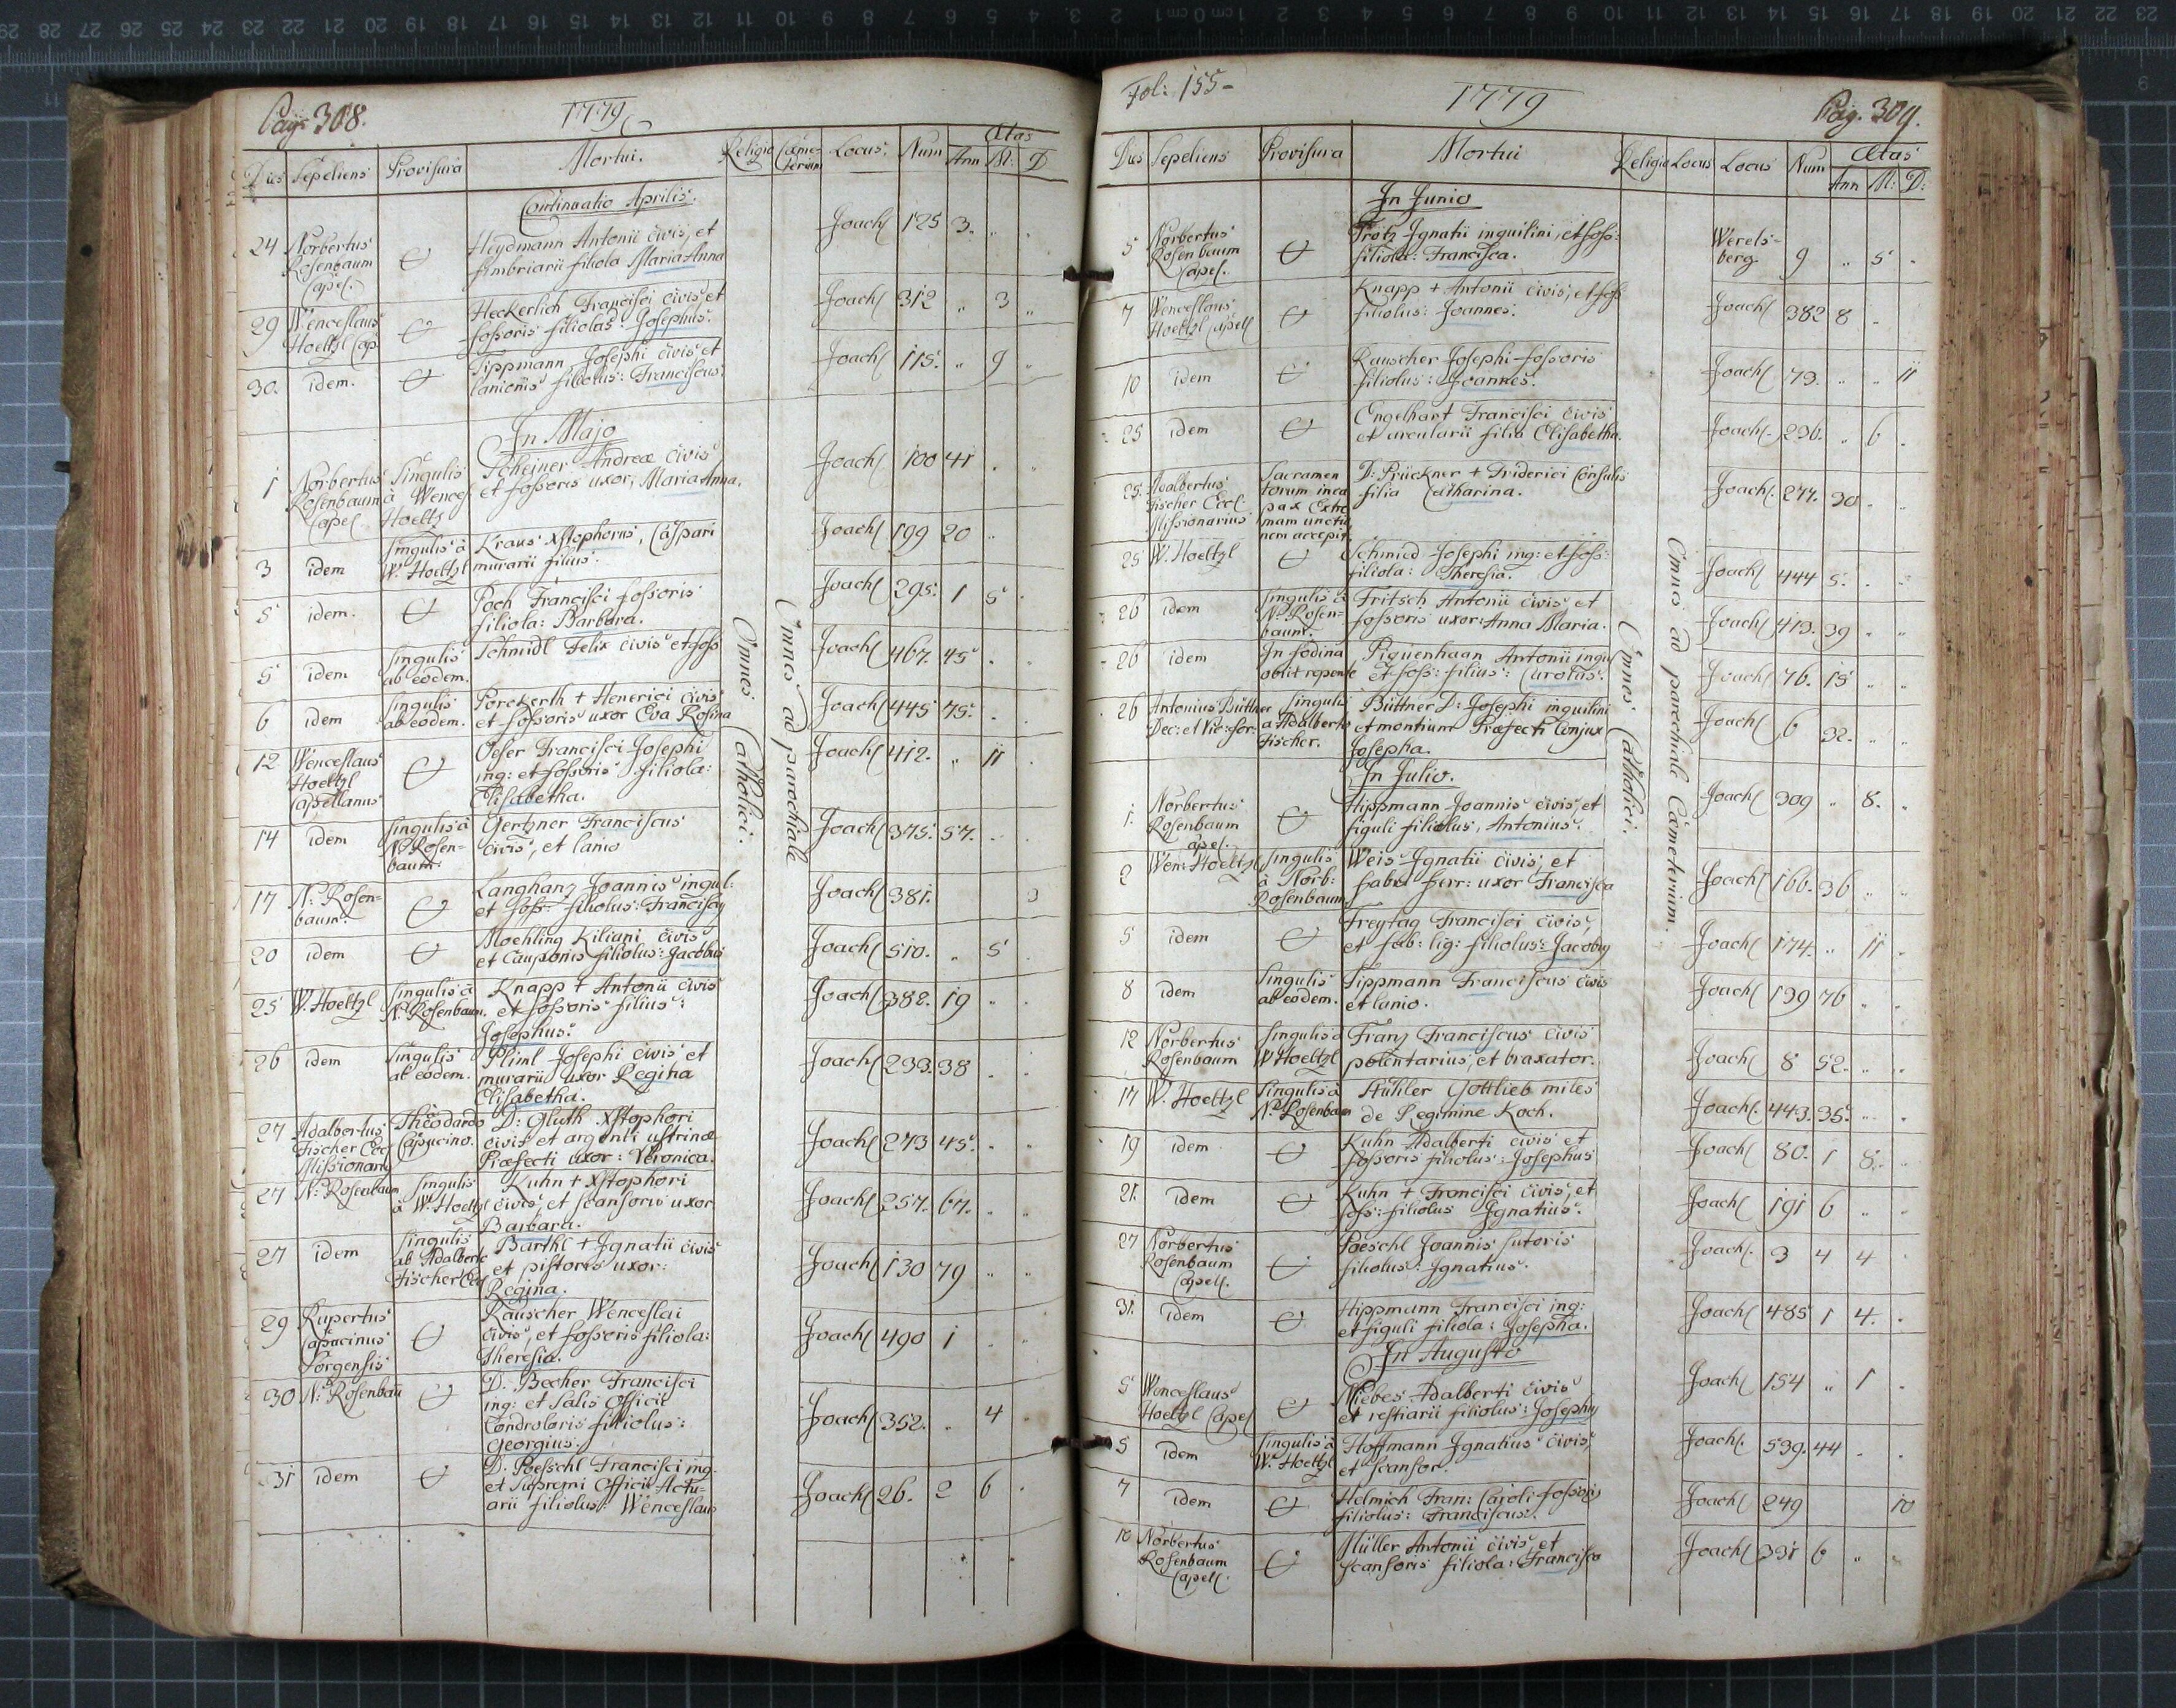 Pag. 308.
1779
Dies Sepeliens Provisura Mortui. Religio Cæme-terium Locus. Num Ætas Ann M: D
Continuatio Aprilis.
24 Norbertus Heydmann Antonii civis, et Joach 125 3.
Rosenbaum fimbriarii filiola Maria Anna
Capel.
29 Wenceslaus Heckerlich Francisci civis, et Joach 312 „ 3 „
Hoeltzl Cap fossoris filiolus: Josephus.
30. idem. Tippmann Josephi civis et Joach 115. „ 9 „
lanionis filiolus: Franciscus.
In Majo
1 Norbertus Singulis Scheiner Andreæ civis Joach 100 41
Rosenbaum à Wences et fossoris uxor, Maria Anna.
Capel Hoeltz
3 idem Singulis à Kraus Xstophorus, Caspari Joach 199 20
W. Hoeltzl murarii filius.
5 idem. Poch Francisci fossoris Joach 295. 1 5
filiola: Barbara.
5 idem Singulis Schmidl Felix civis et foss Joach 467. 45
ab eodem.
6 idem Singulis Porckerth + Henerici civis Joach 445 75.
ab eodem. et fossoris uxor Eva Rosina
12 Wenceslaus Oeser Francisci Josephi Joach 412. „ 11
Hoeltzl inq: et fossoris filiola:
Capellanus Elisabetha.
14 idem Singulis à Gertzner Franciscus Joach 375. 57.
N. Rosen= civis, et lanio
baum.
17 N: Rosen= Langhanz Joannis inqul: Joach 381. 3
baum. et foss: filiolus: Franciscy
20 idem Moehling Kiliani civis Joach 510. „ 5
et cauponis filiolus: Jacobus
25 W. Hoeltzl Singulis à Knapp + Antonii civis Joach 382. 19
N. Rosenbaum. et fossoris filius:
Josephus.
26 idem Singulis Pliml Josephi civis et Joach 233. 38
ab eodem. murarii uxor Regina
Elisabetha.
27 Adalbertus Theodardo D: Gluth Xstophori Joach 273 45.
Fischer Ecc Capucino. civis et argenti ustrinæ
Missionarius Præfecti uxor: Veronica.
27 N: Rosenbaum Singulis Kuhn + Xstophori Joach 257. 67.
à W. Hoeltzl civis, et scansoris uxor
Barbara.
27 idem Singulis Barthl + Ignatii civis Joach 130 79
ab Adalberto et pistoris uxor:
Fischer Ecc Regina.
29 Rupertus Rauscher Wenceslai Joach 490 1
Capucinus civis, et fossoris filiola:
Sorgensis Theresia.
30 N: Rosenbau D. Becher Francisci Joach 352. „ 4
inq: et Salis Officii
Condroloris filiolus:
Georgius.
31 idem D. Poeschl Francisci inq. Joach 26. 2 6
et Supremi Officii Actu=
arii filiolus: Wenceslaus
Omnes Catholici.
Omnes ad parochiale
Fol: 155-
1779
Pag. 309.
Dies Sepeliens Provisura Mortui Religio Locus Locus Num Ætas Ann M: D:
In Junio
5 Norbertus Trötz Ignatii inquilini, et foss: Werels= 9 „ 5
Rosenbaum filiola: Francisca. berg.
Capel.
7 Wenceslaus Knapp + Antonii civis, et foss Joach 382 8
Hoeltzl Capell filiolus: Joannes.
10 idem Rauscher Josephi fossoris Joach 79. „ „ 11
filiolus: Joannes.
25 idem Engelhart Francisci civis Joach 236. „ 6
et arcularii filia Elisabetha.
25. Adalbertus Sacramen D: Prückner + Friderici Consulis Joach. 277. 30
Fischer Eccl. torum inca filia Catharina.
Missionarius pax Extre
mam unctio
nem accepit.
25 W. Hoeltzl Schmied Josephi inq: et foss: Joach 444 5.
filiola: Theresia.
26 idem Singulis à Fritsch Antonii civis et Joach 413. 39
N: Rosen= fossoris uxor: Anna Maria.
baum.
26 idem In fodina Piquenhaan Antonii inqu Joach 76. 15
obiit repente et foss: filius: Carolus.
26 Antonius Büttner Singulis Büttner D: Josephi inquilini Joach 6 32.
Dec: et Vic: for: a Adalberto et montium Præfecti Conjux
Fischer. Josepha.
In Julio.
1. Norbertus Hippmann Joannis civis, et Joach 309 „ 8.
Rosenbaum figuli filiolus, Antonius.
Capel.
2 Wen: Hoeltzl Singulis Weis Ignatii civis, et Joach 166. 36
à Norb: fabri ferr: uxor Francisca
Rosenbaum
5 idem Freytag Francisci civis, Joach 174. „ 11
et fab: lig: filiolus: Jacoby
8 idem Singulis Tippmann Franciscus civis Joach 139 76
ab eodem. et lanio.
12 Norbertus Singulis à Franz Franciscus civis Joach 8 52.
Rosenbaum W Hoeltzl polentarius, et braxator.
17 W. Hoeltzl Singulis à Kühler Gottlieb miles Joach. 443. 35.
N: Rosenbaum de Regimine Koch.
19 idem Kuhn Adalberti civis et Joach 80. 1 8.
fossoris filiolus: Josephus
21. idem Kuhn + Francisci civis, et Joach 191 6
foss: filiolus Ignatius.
27 Norbertus Poeschl Joannis sutoris Joach. 3 4 4
Rosenbaum filiolus: Ignatius.
Capell.
31. idem Hippmann Francisci inq: Joach 485 1 4.
et figuli filiola: Josepha.
In Augusto
5 Wenceslaus Niebes Adalberti civis Joach 154 „ 1
Hoeltzl Capel et restiarii filiolus: Josephy
5 idem Singulis à Hoffmann Ignatius civis, Joach. 539. 44
W. Hoeltzl et scansor.
7 idem Helmich Fran: Caroli fossoris Joach 249 10
filiolus: Franciscus.
10 Norbertus Müller Antonii civis, et Joach 331 6
Rosenbaum scansoris filiola: Francisca
Capell.
Omnes Catholici.
Omnes ad parochiale Cæmeterium.